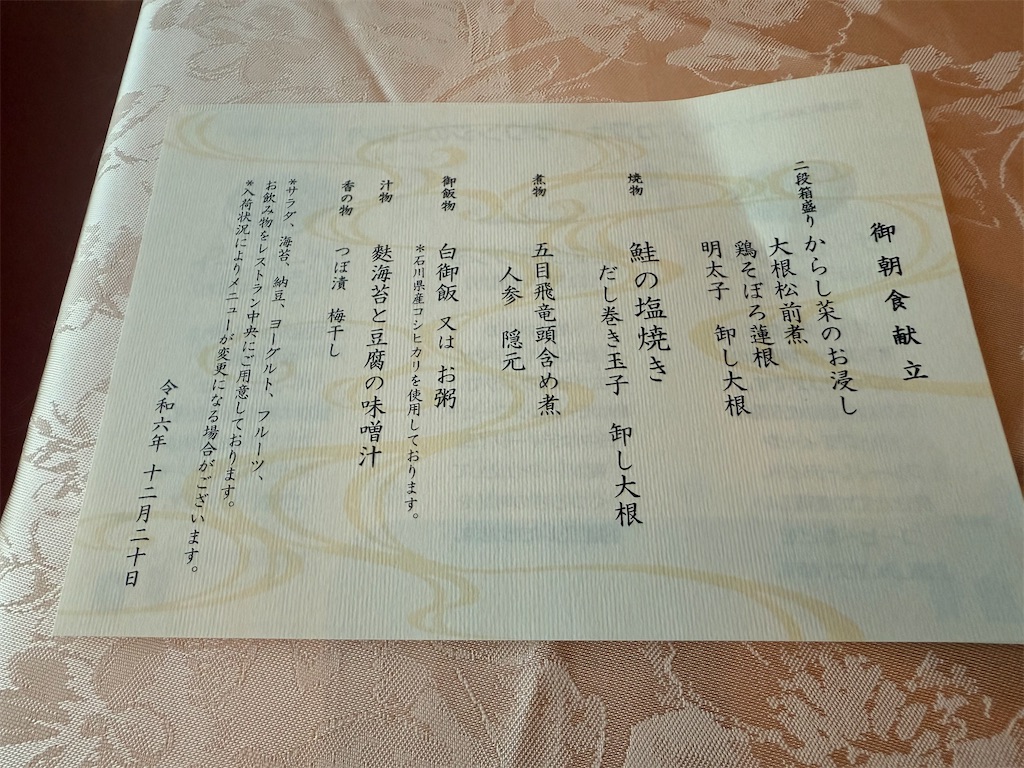 御朝食献立
二段箱盛り からし菜のお浸し
大根松前煮
鶏そぼろ蓮根
明太子 卸し大根
焼物 鮭の塩焼き
だし巻き玉子 卸し大根
煮物 五目飛竜頭含め煮
人参 隠元
御飯物 白御飯 又は お粥
*石川県産コシヒカリを使用しております。
汁物 麩海苔と豆腐の味噌汁
香の物 つぼ漬 梅干し
*サラダ、海苔、納豆、ヨーグルト、フルーツ、
お飲み物をレストラン中央にご用意しております。
*入荷状況によりメニューが変更になる場合がございます。
令和六年 十二月二十日